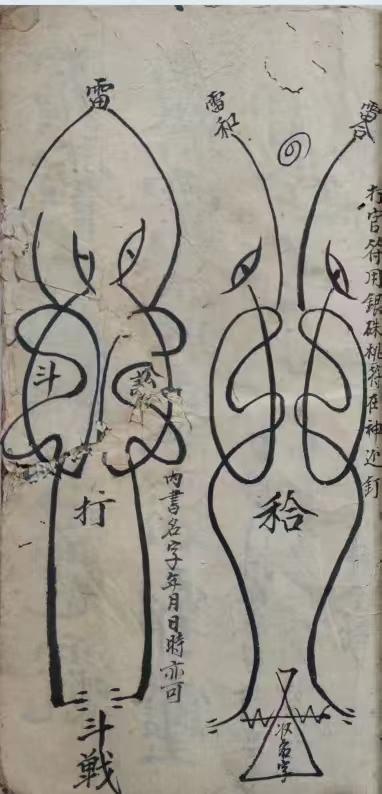 打官符用銀硃桃符在神边釘
雷合
雷和
秴
名字
内書名字年月日時亦可
雷
斗
訟
打
斗戦